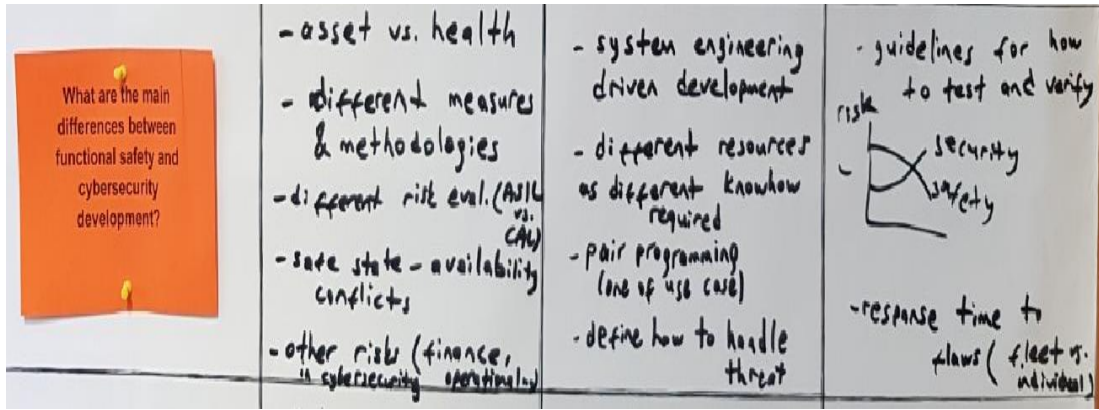 What are the main
differences between
functional safety and
cybersecurity
development?
- asset vs. health
- different measures
& methodologies
- different risk eval. (ASIL
vs.
CAL)
- safe state - availability
conflicts
- other risks (finance,
in cybersecurity operational)
- system engineering
driven development
- different resources
as different knowhow
required
- pair programming
(one of use case)
- define how to handle
threat
- guidelines for how
to test and verify
risk
security
safety
- response time to
flaws (fleet vs.
individual)